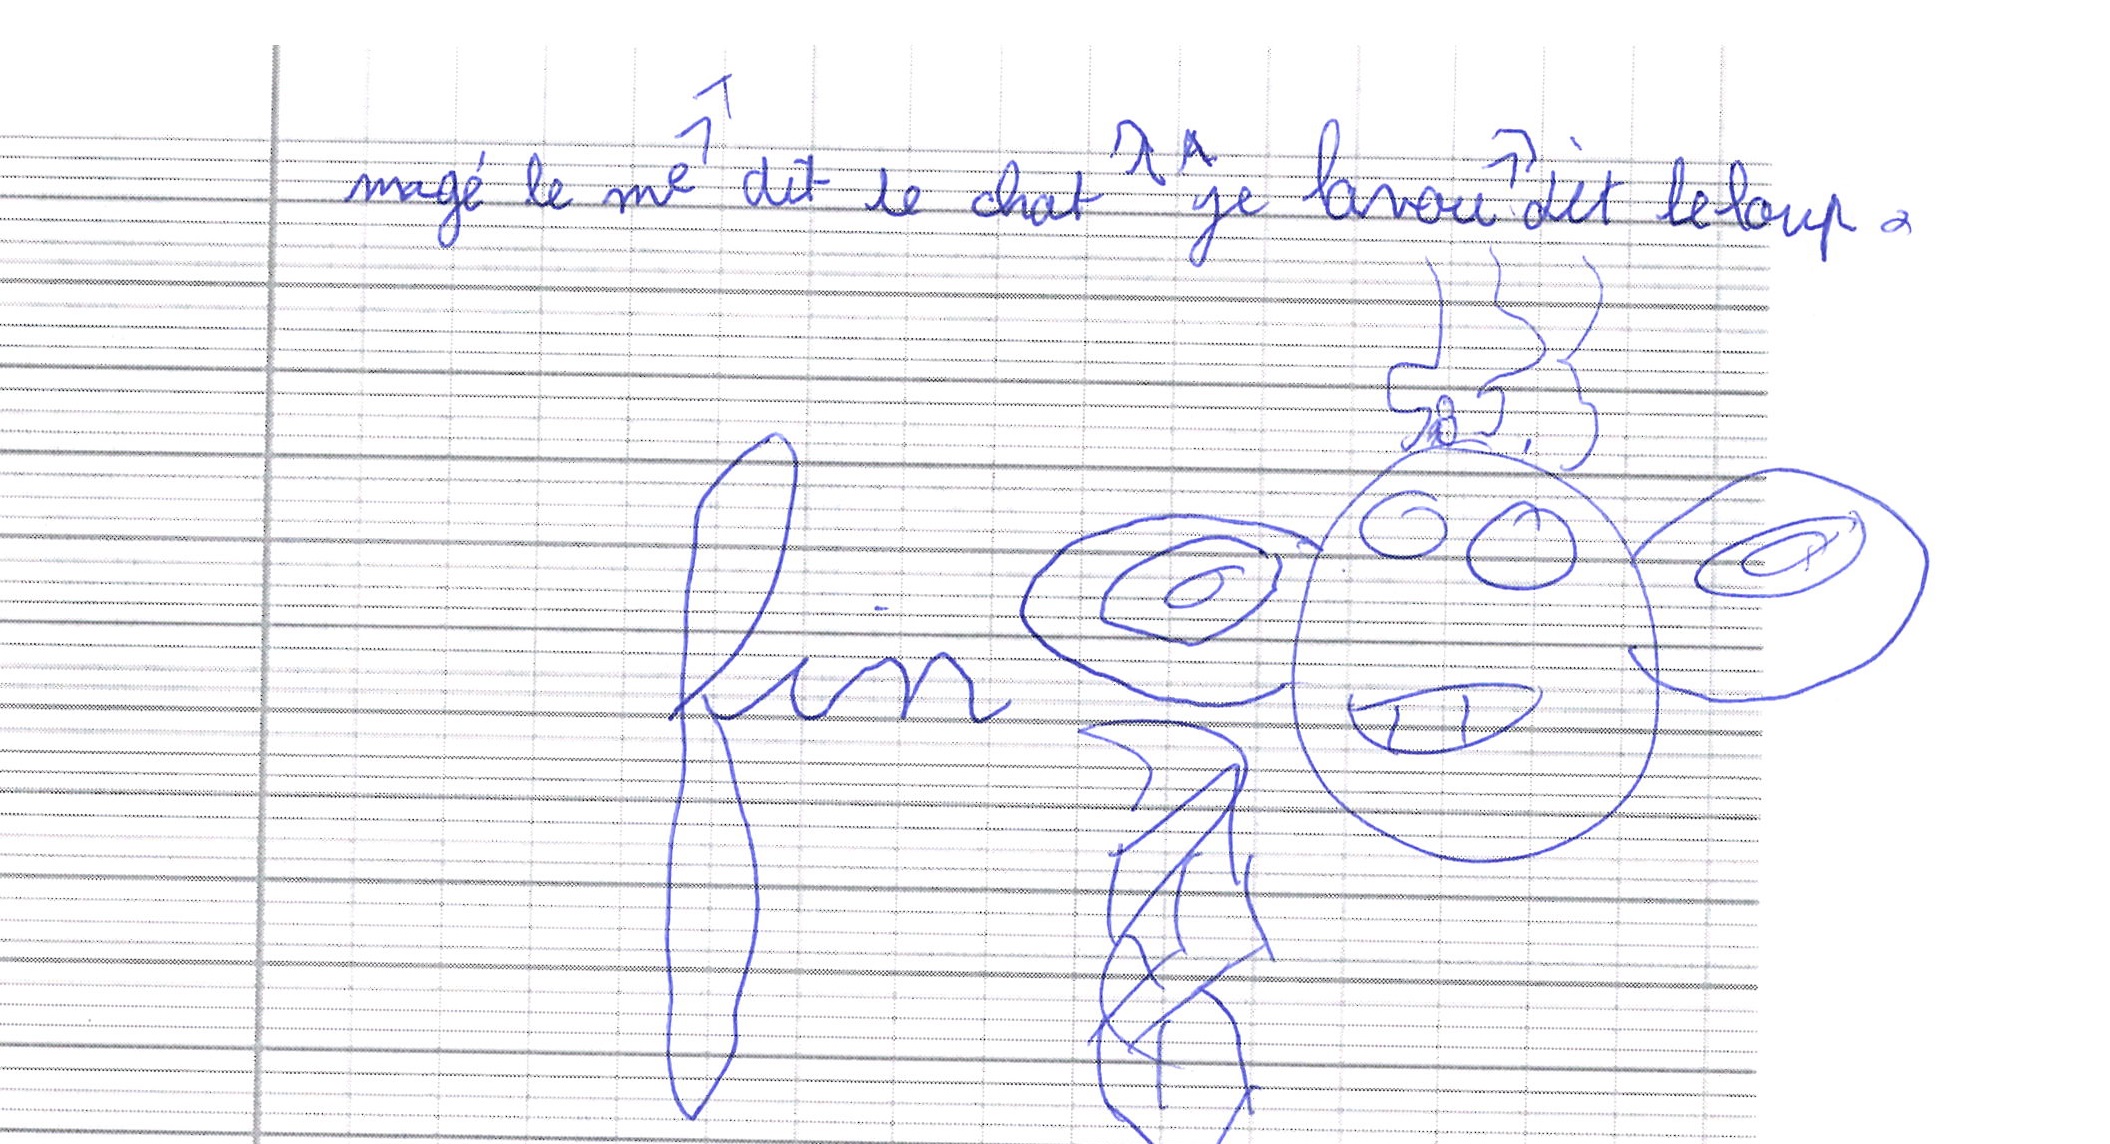 magé le me " dit le chat " ge lavou " dit le loup.
fin